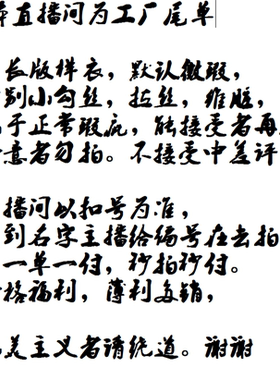 直播间为工厂尾单
长版样衣，默认微瑕，
别小勾丝，拉丝，维脏，
于正常瑕疵，能接受者再
意者勿拍。不接受中差评
播间以扣号为准，
到名字主播给编号在去拍
一单一付，秒拍秒付。
格福利，薄利多销，
美主义者请绕道。谢谢